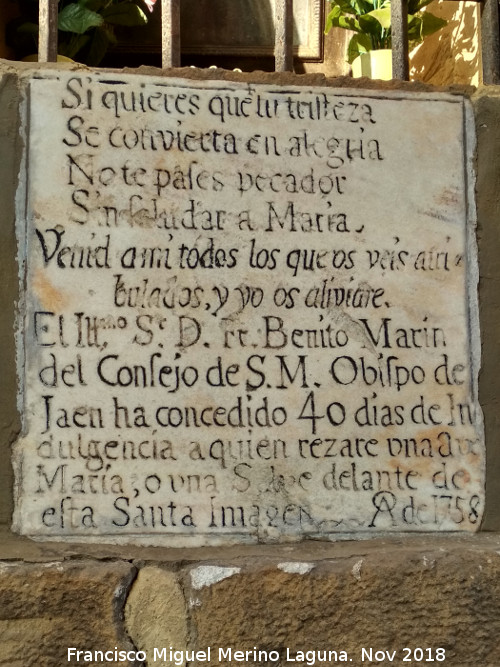 Si quieres que tu tristeza
Se convierta en alegria
No te pases pecador
Sin saludar a Maria.
Venid a mi todos los que os veis atri-
bulados, y yo os aliviare.
El Ill.mo Sr. D. Fr. Benito Marin
del Consejo de S. M. Obispo de
Jaen ha concedido 40 dias de In
dulgencia a quien rezare vna Ave
Maria, o vna Salve delante de
esta Santa Imagen A de 1758
Francisco Miguel Merino Laguna. Nov 2018